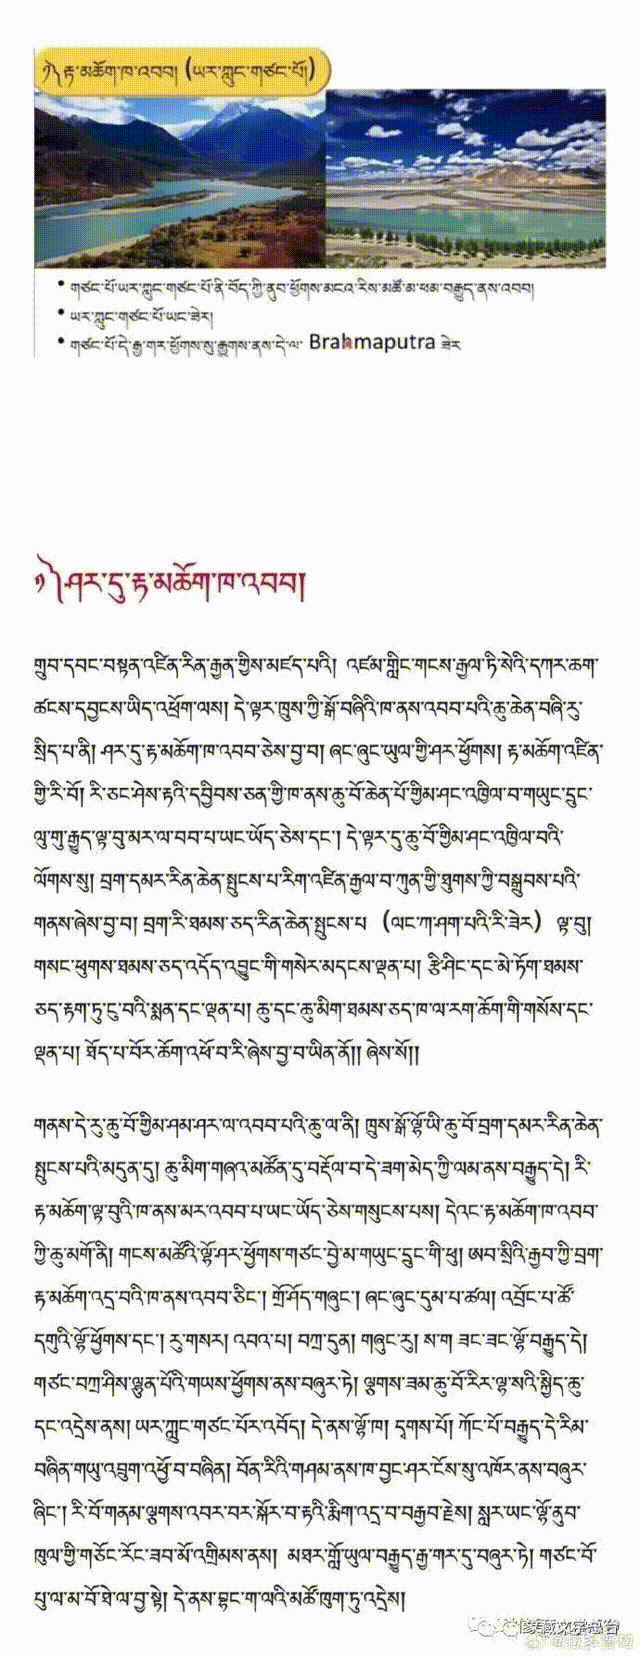 ༡༽ རྟ་མཆོག་ཁ་འབབ། (ཡར་ཀླུང་གཙང་པོ།)
• གཙང་པོ་ཡར་ཀླུང་གཙང་པོ་ནི་བོད་ཀྱི་ནུབ་ཕྱོགས་མངའ་རིས་མཚོ་མ་ཕམ་བརྒྱུད་ནས་འབབ།
• ཡར་ཀླུང་གཙང་པོ་ཡང་ཟེར།
• གཙང་པོ་དེ་རྒྱ་གར་ཕྱོགས་སུ་རྒྱུགས་ནས་དེ་ལ་ Brahmaputra ཟེར
༡༽ཤར་དུ་རྟ་མཆོག་ཁ་འབབ།
གྲུབ་དབང་བསྟན་འཛིན་རིན་རྒྱན་གྱིས་མཛད་པའི། འཛམ་གླིང་གངས་རྒྱལ་ཏི་སེའི་དཀར་ཆག་
ཚངས་དབྱངས་ཡིད་འཕྲོག་ལས། དེ་ལྟར་ཁྲུས་ཀྱི་སྒོ་བཞིའི་ཁ་ནས་འབབ་པའི་ཆུ་ཆེན་བཞི་རུ་
སྲིད་པ་ནི། ཤར་དུ་རྟ་མཆོག་ཁ་འབབ་ཅེས་བྱ་བ། ཞང་ཞུང་ཡུལ་གྱི་ཤར་ཕྱོགས། རྟ་མཆོག་འཛིན་
གྱི་རི་བོ། རི་ཅང་ཤེས་རྟའི་དབྱིབས་ཅན་གྱི་ཁ་ནས་ཆུ་བོ་ཆེན་པོ་གྱིམ་ཤང་འཁྱིལ་བ་གཡུང་དྲུང་
ལུ་གུ་རྒྱུད་ལྟ་བུ་མར་ལ་བབ་པ་ཡང་ཡོད་ཅེས་དང་། དེ་ལྟར་དུ་ཆུ་བོ་གྱིམ་ཤང་འཁྱིལ་བའི་
ལོགས་སུ། བྲག་དམར་རིན་ཆེན་སྤུངས་པ་རིག་འཛིན་རྒྱལ་བ་ཀུན་གྱི་ཐུགས་ཀྱི་བསྒྲུབས་པའི་
གནས་ཞེས་བྱ་བ། བྲག་རི་ཐམས་ཅད་རིན་ཆེན་སྤུངས་པ (ལང་ཀ་ཤག་པའི་རི་ཟེར) ལྟ་བུ།
གསང་ཕུགས་ཐམས་ཅད་འདོད་འབྱུང་གི་གསེར་མདངས་ལྡན་པ། རྩི་ཤིང་དང་མེ་ཏོག་ཐམས་
ཅད་རྟག་ཏུ་ངུ་བའི་སྨན་དང་ལྡན་པ། ཆུ་དང་ཆུ་མིག་ཐམས་ཅད་ཁ་ལ་རག་ཆོག་གི་གསོས་དང་
ལྡན་པ། ཐོད་པ་བོར་ཆོག་འཕོ་བ་རི་ཞེས་བྱ་བ་ཡིན་ནོ།། ཞེས་སོ།།
གནས་དེ་རུ་ཆུ་བོ་གྱིམ་ཤམ་ཤར་ལ་འབབ་པའི་ཆུ་ལ་ནི། ཁྲུས་སྒོ་ལྷོ་ཡི་ཆུ་བོ་བྲག་དམར་རིན་ཆེན་
སྤུངས་པའི་མདུན་དུ། ཆུ་མིག་གཞའ་མཚོན་དུ་བརྡོལ་བ་དེ་ཟག་མེད་ཀྱི་ལམ་ནས་བརྒྱུད་དེ། རི་
རྟ་མཆོག་ལྟ་བུའི་ཁ་ནས་མར་འབབ་པ་ཡང་ཡོད་ཅེས་གསུངས་པས། དེའང་རྟ་མཆོག་ཁ་འབབ་
ཀྱི་ཆུ་མགོ་ནི། གངས་མཚོའི་ལྷོ་ཤར་ཕྱོགས་གཙང་བྱེ་མ་གཡུང་དྲུང་གི་ཕུ། ཨབ་སྲིའི་རྒྱབ་ཀྱི་བྲག་
རྟ་མཆོག་འདྲ་བའི་ཁ་ནས་འབབ་ཅིང་། གྲོ་ཤོད་གཞུང་། ཞང་ཞུང་དུམ་པ་ཚལ། འབྲོང་པ་ཚོ་
དགུའི་ལྷོ་ཕྱོགས་དང་། རུ་གསར། འབའ་པ། བཀྲ་དུན། གཞུང་རུ། ས་ག ཟང་ཟང་ལྷོ་བརྒྱུད་དེ།
གཙང་བཀྲ་ཤིས་ལྷུན་པོའི་གཡས་ཕྱོགས་ནས་བཞུར་ཏེ། ལྕགས་ཟམ་ཆུ་བོ་རིར་ལྷ་སའི་སྐྱིད་ཆུ་
དང་འདྲེས་ནས། ཡར་ཀླུང་གཙང་པོར་འབོད། དེ་ནས་ལྷོ་ཁ། དྭགས་པོ། ཀོང་པོ་བརྒྱུད་དེ་རིམ་
བཞིན་གཡུ་འབྲུག་འཕྱོ་བ་བཞིན། བོན་རིའི་གཤམ་ནས་ཁ་བྱང་ཤར་ངོས་སུ་འཁོར་ནས་བཞུར་
ཞིང་། རི་བོ་གནམ་ལྕགས་འབར་བར་སྐོར་བ་རྟའི་རྨིག་འདྲ་བ་བརྒྱབ་རྗེས། སླར་ཡང་ལྷོ་ནུབ་
ཁུལ་གྱི་གཅོང་རོང་ཟབ་མོ་འགྲིམས་ནས། མཐར་གློ་ཡུལ་བརྒྱུད་རྒྱ་གར་དུ་བཞུར་ཏེ། གཙང་བོ་
པུ་ལ་མ་བོ་ཐེ་ལ་བྱ་སྟེ། དེ་ནས་བྷང་ག་ལའི་མཚོ་ཁུག་ཏུ་འདྲེས།